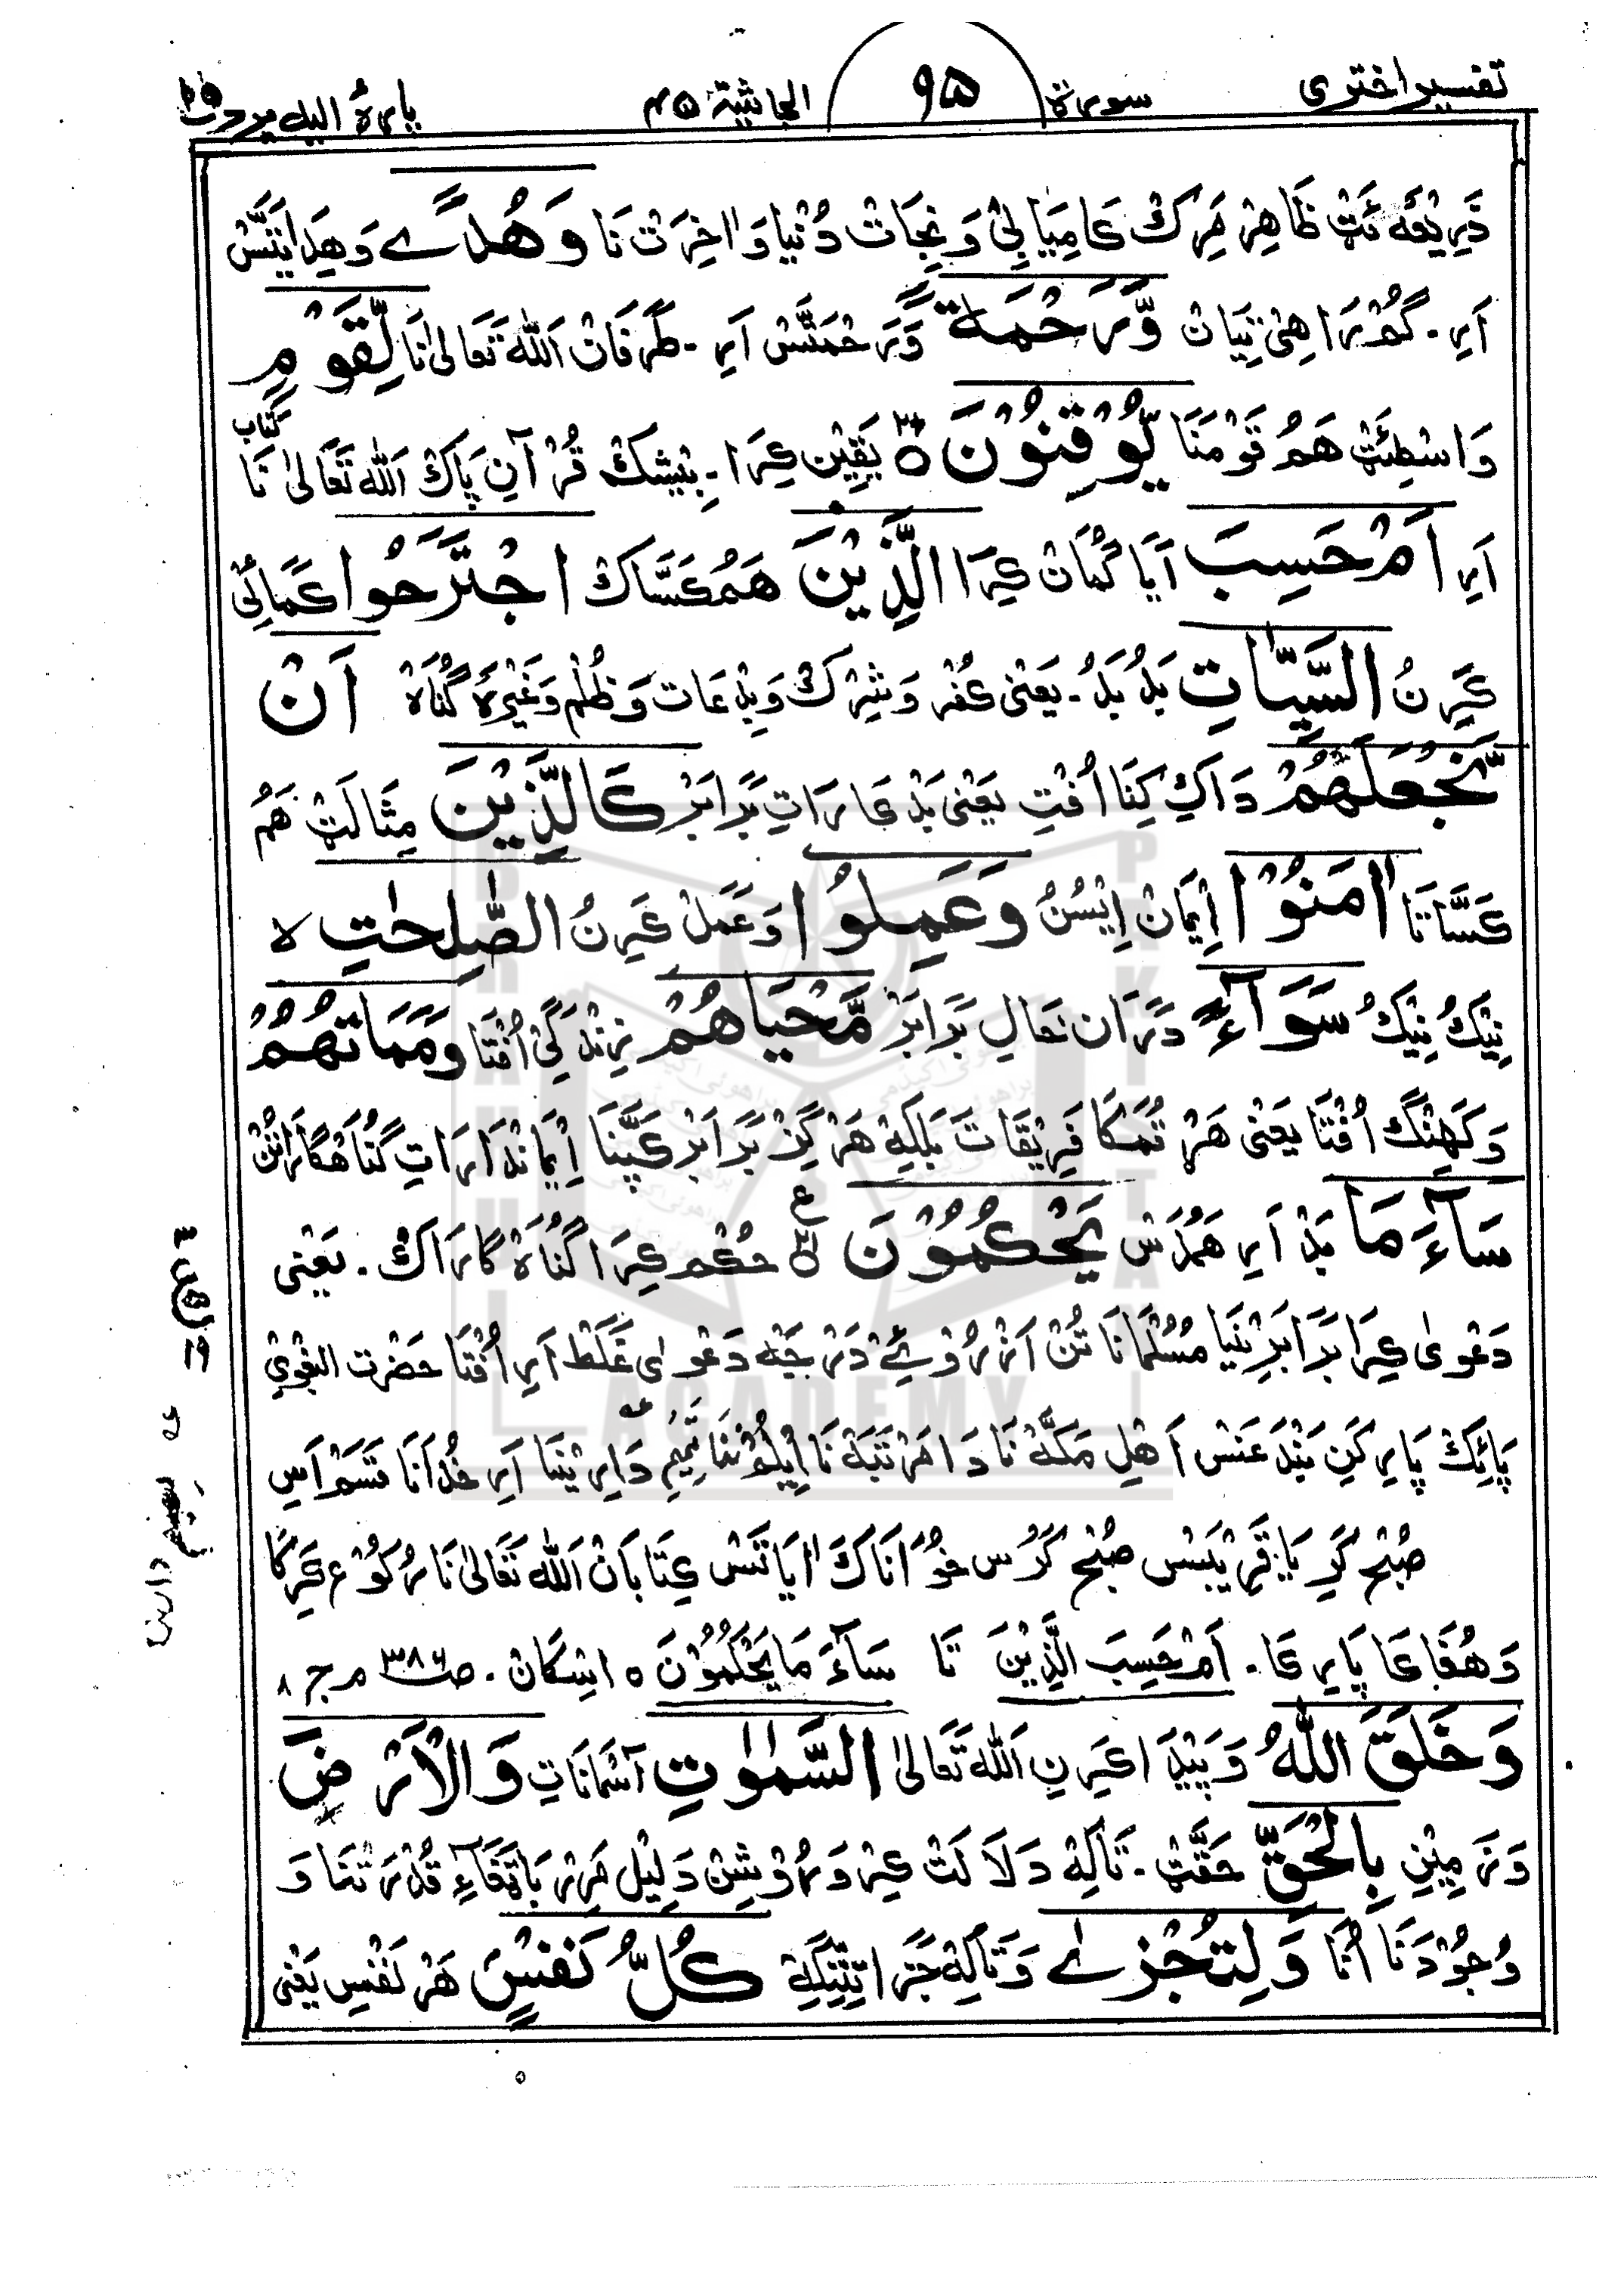 تفسیر اختری سورة ۹۵ الجاثية ۴۵ پارۀ الیه یرد ۲۵
ذَرِیْعَه ئَٹْ ظَاهِرْ مَرِكْ كَامِیَابِیْ وَ نِجَاتْ دُنْیَا وَ اٰخِرَتْ نَا وَهُدًى وَ هِدَایَتَّسْ
اَرِ ـ گُمْرَاهِیْ نِیَانْ وَّرَحْمَةٌ وَّ رَحْمَتَّسْ اَرِ ـ طَرَفَانْ اَللّٰه تَعَالىٰ نَا لِّقَوْمٍ
وَاسْطِئَٹْ هَمُ قَوْمَنَا یُّوْقِنُوْنَ ۝۲۰ یَقِیْن کِرَا ـ بِیْشَكْ قُرْآنِ پَاكْ اَللّٰه تَعَالىٰ نَا کِتَاب
اَرِ اَمْ حَسِبَ آیَا گُمَانْ کِرَا الَّذِیْنَ هَمُ کَسَّاكْ اجْتَرَحُوا کَمَائِیْ
کَرِنُ السَّیِّاٰتِ بَدُ بَدُ ـ یَعْنِیْ کُفْر وَ شِرْكْ وَ بِدْعَات وَ ظُلْم وَ غَیْرِه گُنَاهْ اَنْ
نَّجْعَلَهُمْ دَاكِ کِنَا اُفْتِ یَعْنِیْ بَدْ کَارَاتِ بَرَابَرْ كَالَّذِیْنَ مِثَالَٹْ هَمُ
کَسَّانَا اٰمَنُوْا اِیْمَانْ اِیْسُنُ وَعَمِلُوا وَ عَمَلْ کَرِنُ الصّٰلِحٰتِ لا
نِیْكُ نِیْكُ سَوَآءً دَرَانْ حَالِ بَرَابَرْ مَّحْیَاهُمْ زِنْدَگِیْ اُفْتَا وَمَمَاتُهُمْ
وَ کَهِنْگ اُفْتَا یَعْنِیْ هَرْ تُمَکَا فَرِیْقَاتَ بَلْکِهْ هَرْ گِزْ بَرَابَرْ کَپَّنَا اِیْمَانْدَارَاتِ گُنَاهْگَارَاتُنْ
سَآءَ مَا بَدْ اَرِ هَمُدَسْ یَحْكُمُوْنَ ۝۲۱ ع حُکْم کِرَا گُنَاهْ گَارَاكْ ـ یَعْنِیْ
دَعْوىٰ کِرَا بَرَابَرِیْ نِیَا مُسُلْمَانَا تُنْ اَزْ رُوْئے دَرْجَه دَعْوىٰ غَلَط اَرِ اُفْتَا حَضْرَت البَغَوِیْ
پَائِكْ پَارِ کَنِ بَنْدَغَسْ اَهْلِ مَکَّهْ نَا دَا مَرْتَبَهْ نَا اِیْلُمْ نُمَا تَمِیْمِ دَارِیْ نِیَا اَرِ خُدَانَا قَسَمْ اَسِ
صُبْح کَرِ یَا قَرِیْبَسْ صُبْح کَرُسْ خُوْانَاكَ اٰیَاتَسْ کِتَابَانْ اَللّٰه تَعَالىٰ نَا رُکُوْع کَرِکَا
وَ هُغَاکَا پَارِکَا ـ اَمْ حَسِبَ الَّذِیْنَ تَا سَآءَ مَا یَحْكُمُوْنَ ۝ اسِکَانْ ـ صـ ۳۸۶ مـ جـ ۸
وَخَلَقَ اللّٰهُ وَ پَیْدَا کَرِنِ اَللّٰه تَعَالىٰ السَّمٰوٰتِ آسْمَانَاتِ وَالْاَرْضَ
وَ زَمِیْنِ بِالْحَقِّ حَقَّٹْ ـ تَاکِهْ دَلَالَتْ کِرْ وَ رُوْشِنْ دَلِیْل مَرِرْ بَاتَّفَاءِ قُدْرَتْنَا وَ
وُجُوْدَنَا اُنَا وَلِتُجْزٰى وَ تَاکِهْ جَزَا تِنِنْگِهْ كُلُّ نَفْسٍ هَرْ نَفْس یَعْنِیْ